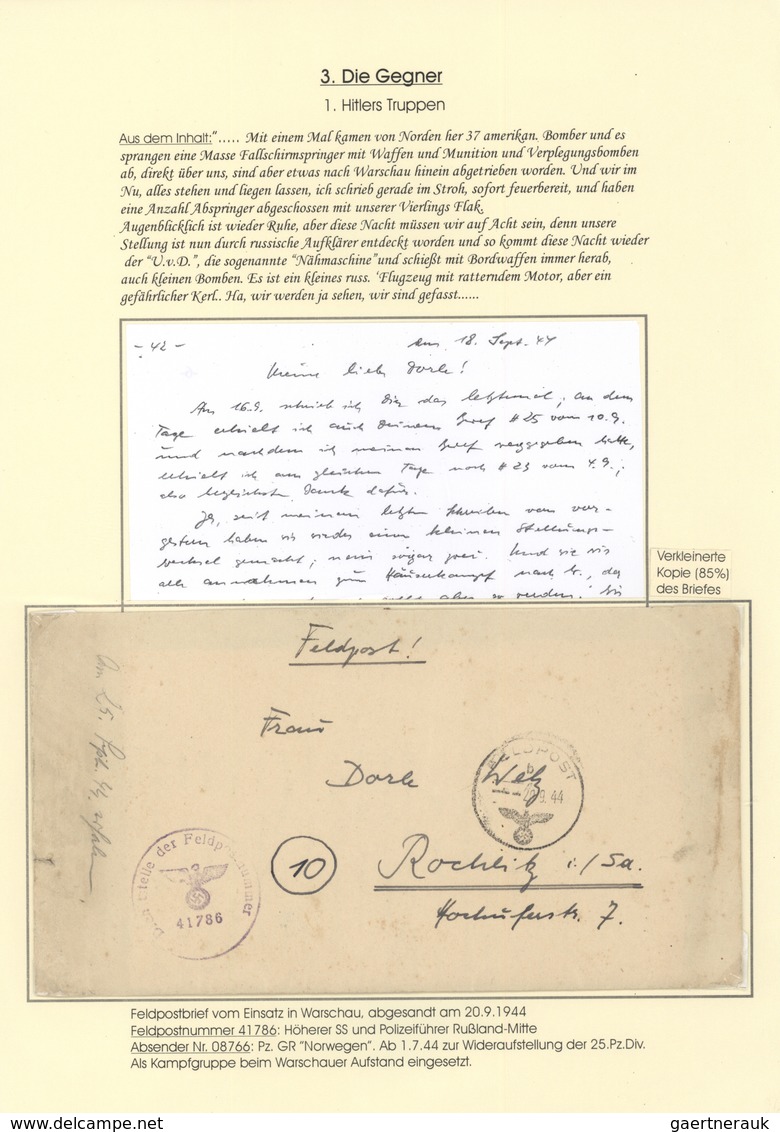 3. Die Gegner
1. Hitlers Truppen
Aus dem Inhalt:"..... Mit einem Mal kamen von Norden her 37 amerikan. Bomber und es
sprangen eine Masse Fallschirmspringer mit Waffen und Munition und Verplegungsbomben
ab, direkt über uns, sind aber etwas nach Warschau hinein abgetrieben worden. Und wir im
Nu, alles stehen und liegen lassen, ich schrieb gerade im Stroh, sofort feuerbereit, und haben
eine Anzahl Abspringer abgeschossen mit unserer Vierlings Flak.
Augenblicklich ist wieder Ruhe, aber diese Nacht müssen wir auf Acht sein, denn unsere
Stellung ist nun durch russische Aufklärer entdeckt worden und so kommt diese Nacht wieder
der "U.v.D.", die sogenannte "Nähmaschine"und schießt mit Bordwaffen immer herab,
auch kleinen Bomben. Es ist ein kleines russ. 'Flugzeug mit ratterndem Motor, aber ein
gefährlicher Kerl.. Ha, wir werden ja sehen, wir sind gefasst......
- 42 - den 18. Sept. 44
Meine liebe Dorle!
Am 16.9. schrieb ich Dir das letztemal; an dem
Tage erhielt ich auch Deinen Brief #25 vom 10.9.
und nachdem ich meinen Brief weggegeben hatte,
erhielt ich am gleichen Tage noch #23 vom 4.9.;
also herzlichsten Dank dafür.
Ja, seit meinem letzten Schreiben vom vor-
gestern haben wir wieder einen kleinen Stellungs-
wechsel gemacht; nein sogar zwei. Und wie wir
alle annahmen zum Häuserkampf nach W., der
Verkleinerte
Kopie (85%)
des Briefes
Feldpost!
Frau
Dorle Welz
FELDPOST
b
.9.44
Rochlitz i./Sa.
Hochuferstr. 7.
10
Dienststelle der Feldpostnummer
41786
Am 25. Sept. 44
Feldpostbrief vom Einsatz in Warschau, abgesandt am 20.9.1944
Feldpostnummer 41786: Höherer SS und Polizeiführer Rußland-Mitte
Absender Nr. 08766: Pz. GR "Norwegen". Ab 1.7.44 zur Wideraufstellung der 25.Pz.Div.
Als Kampfgruppe beim Warschauer Aufstand eingesetzt.
www.delcampe.net
gaertnerauk